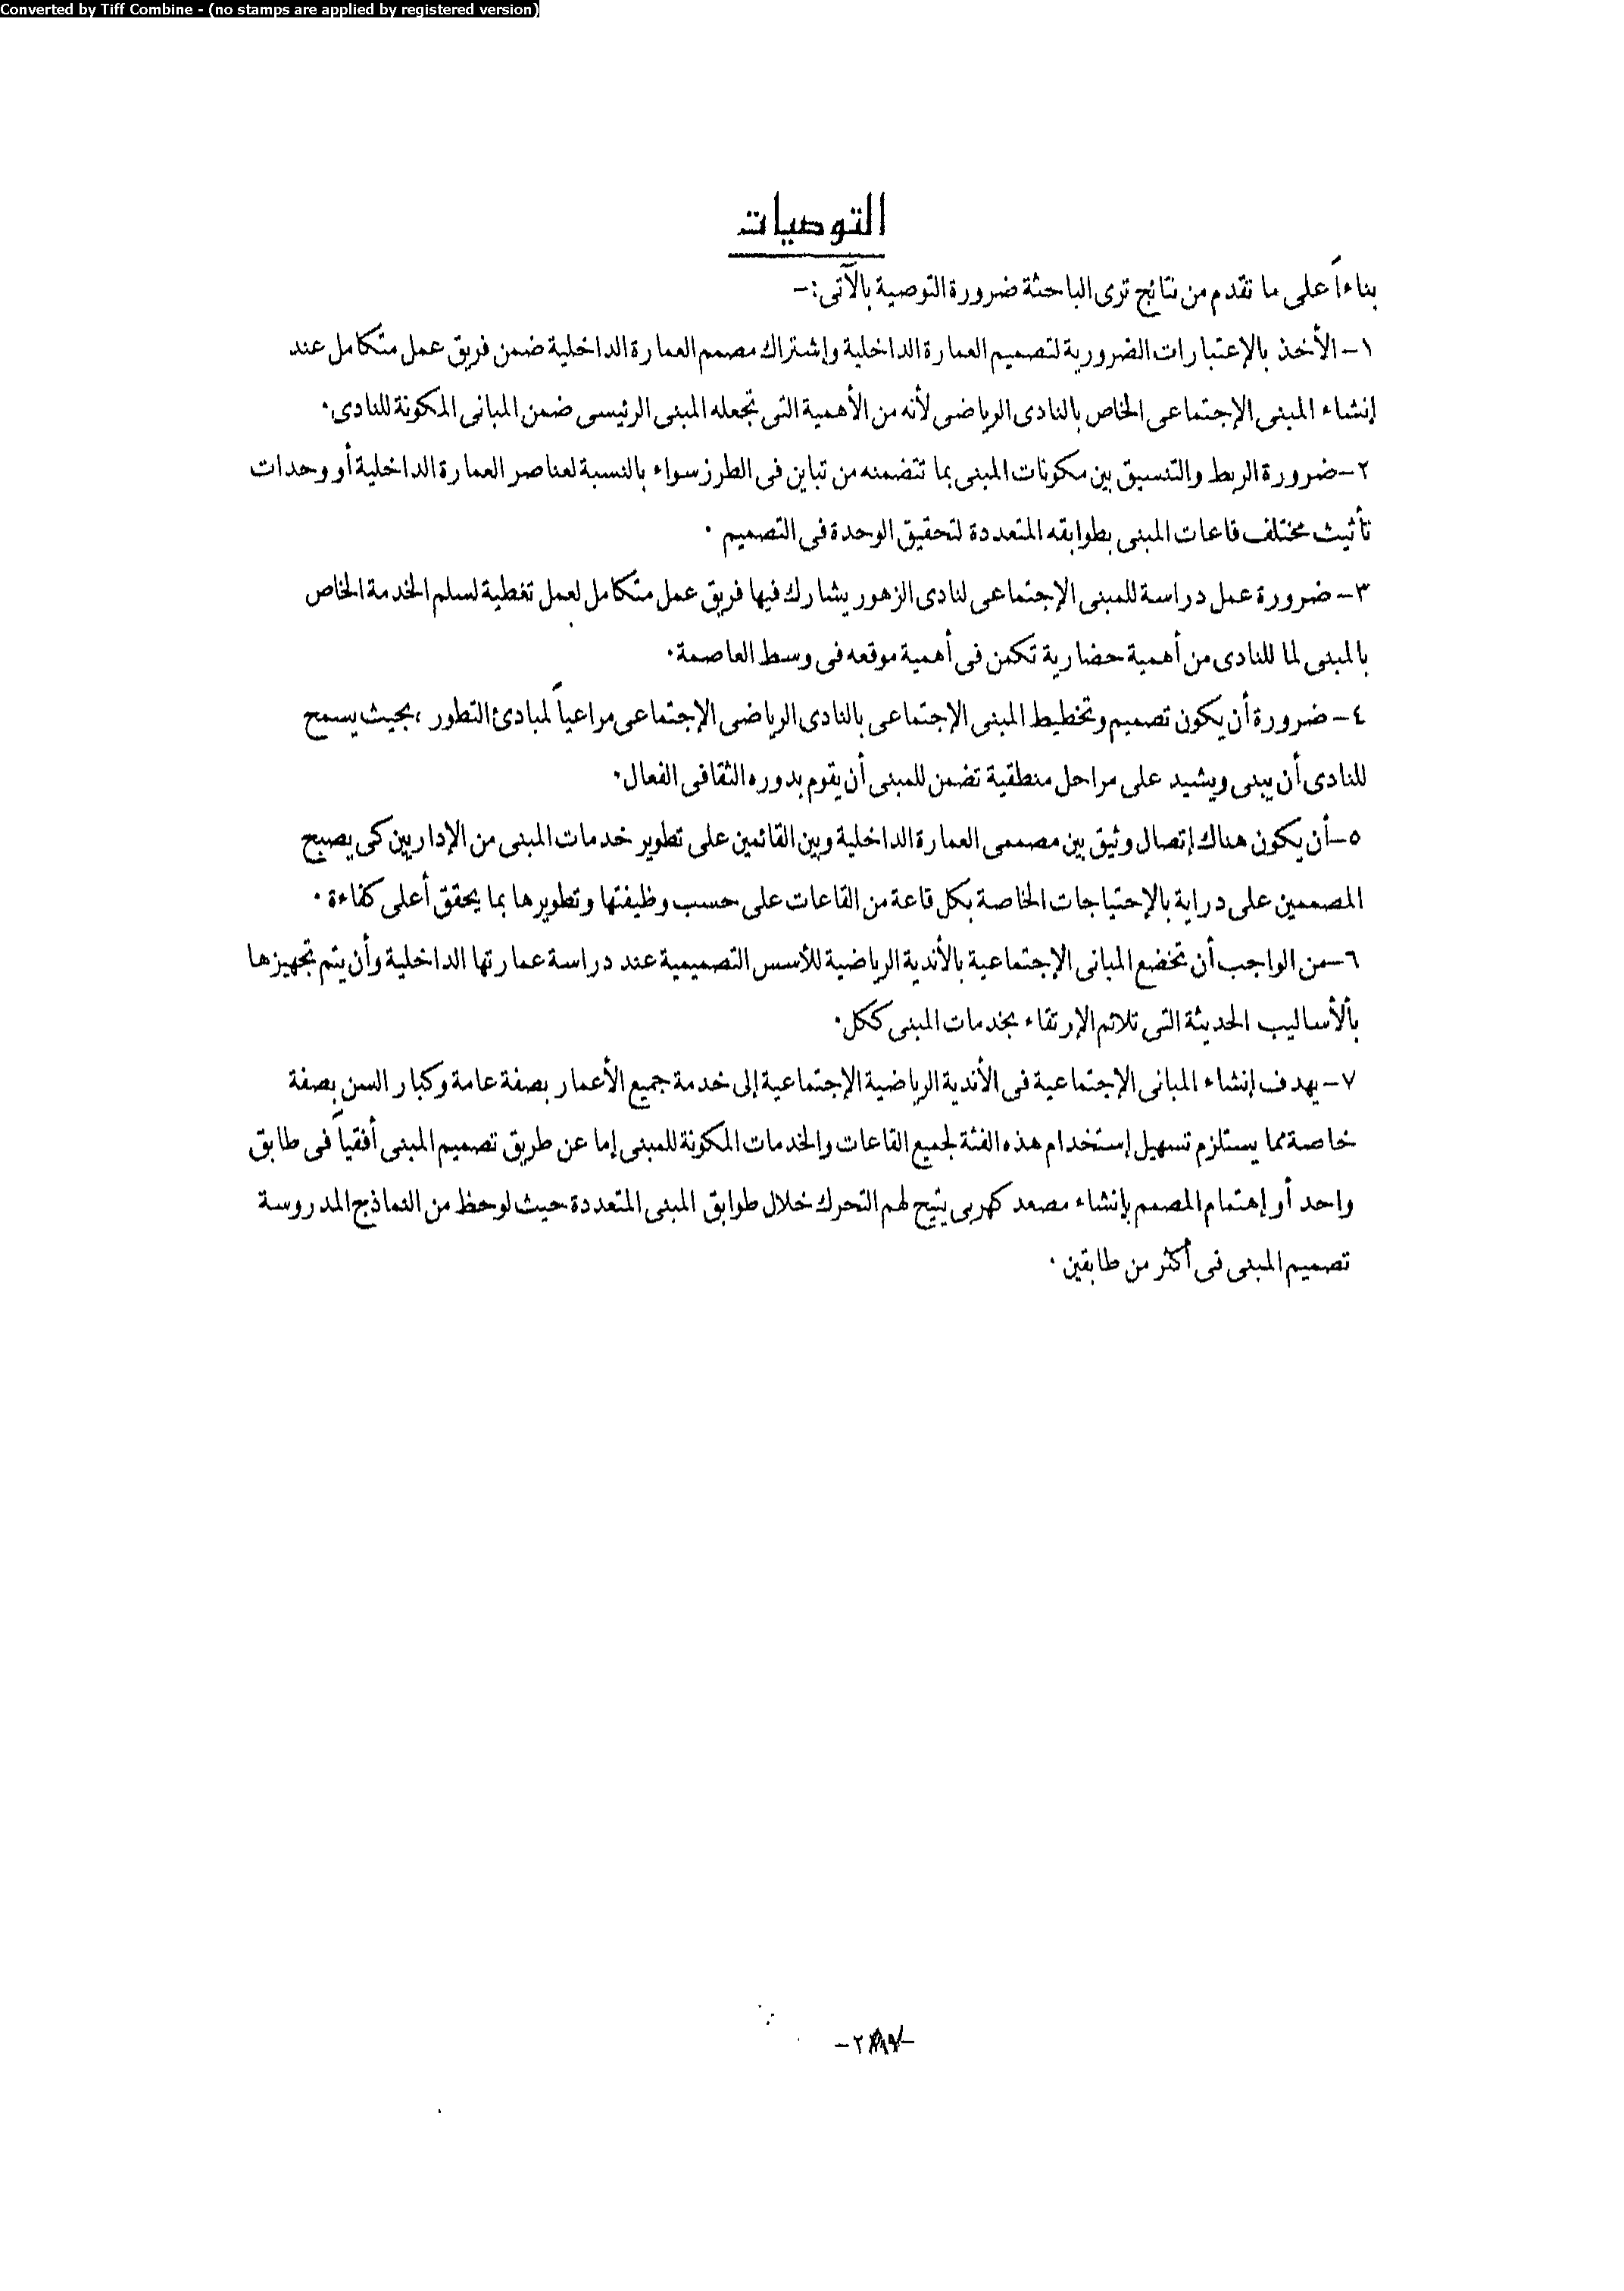 Converted by Tiff Combine - (no stamps are applied by registered version)
التوصيات
بناءاً على ما تقدم من نتائج ترى الباحثة ضرورة التوصية بالآتى:-
١- الأخذ بالإعتبارات الضرورية لتصميم العمارة الداخلية وإشتراك مصمم العمارة الداخلية ضمن فريق عمل متكامل عند
إنشاء المبنى الإجتماعى الخاص بالنادى الرياضى لأنه من الأهمية التى تجعله المبنى الرئيسى ضمن المبانى المكونة للنادى٠
٢- ضرورة الربط والتنسيق بين مكونات المبنى بما تتضمنه من تباين فى الطرز سواء بالنسبة لعناصر العمارة الداخلية أو وحدات
تأثيث مختلف قاعات المبنى بطوابقه المتعددة لتحقيق الوحدة فى التصميم ٠
٣- ضرورة عمل دراسة للمبنى الإجتماعى لنادى الزهور يشارك فيها فريق عمل متكامل لعمل تغطية لسلم الخدمة الخاص
بالمبنى لما للنادى من أهمية حضارية تكمن فى أهمية موقعه فى وسط العاصمة٠
٤- ضرورة أن يكون تصميم وتخطيط المبنى الإجتماعى بالنادى الرياضى الإجتماعى مراعياً لمبادئ التطور ،بحيث يسمح
للنادى أن يبنى ويشيد على مراحل منطقية تضمن للمبنى أن يقوم بدوره الثقافى الفعال٠
٥- أن يكون هناك إتصال وثيق بين مصممى العمارة الداخلية وبين القائمين على تطوير خدمات المبنى من الإداريين كى يصبح
المصممين على دراية بالإحتياجات الخاصة بكل قاعة من القاعات على حسب وظيفتها وتطويرها بما يحقق أعلى كفاءة ٠
٦- من الواجب أن تخضع المبانى الإجتماعية بالأندية الرياضية للأسس التصميمية عند دراسة عمارتها الداخلية وأن يتم تجهيزها
بألأساليب الحديثة التى تلائم الإرتقاء بخدمات المبنى ككل٠
٧- يهدف إنشاء المبانى الإجتماعية فى الأندية الرياضية الإجتماعية إلى خدمة جميع الأعمار بصفة عامة وكبار السن بصفة
خاصة مما يستلزم تسهيل إستخدام هذه الفئة لجميع القاعات والخدمات المكونة للمبنى إما عن طريق تصميم المبنى أفقياً فى طابق
واحد أو إهتمام المصمم بإنشاء مصعد كهربى يتيح لهم التحرك خلال طوابق المبنى المتعددة حيث لوحظ من النماذج المدروسة
تصميم المبنى فى أكثر من طابقين ٠